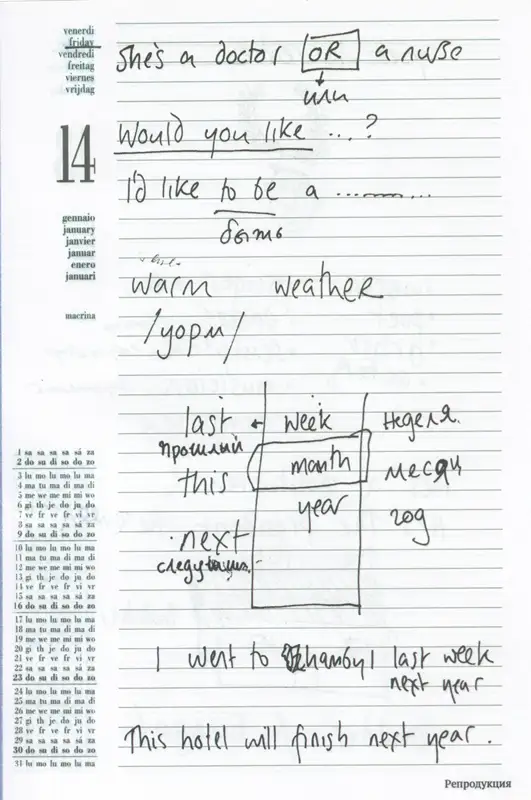 venerdi
friday
vendredi
freitag
viernes
vrijdag
14
gennaio
january
janvier
januar
enero
januari
macrina
She's a doctor OR a nurse
или
Would you like ...?
I'd like to be a ...........
быть
warm weather
/уорм/
last week неделя.
прошлый
this month месяц
year год
next
I went to Zhambyl last week
next year
This hotel will finish next year.
1 sa sa sa sa sá za
2 do su di so do zo
3 lu mo lu mo lu ma
4 ma tu ma di ma di
5 me we me mi mi wo
6 gi th je do ju do
7 ve fr ve fr vi vr
8 sa sa sa sa sá za
9 do su di so do zo
10 lu mo lu mo lu ma
11 ma tu ma di ma di
12 me we me mi mi wo
13 gi th je do ju do
14 ve fr ve fr vi vr
15 sa sa sa sa sá za
16 do su di so do zo
17 lu mo lu mo lu ma
18 ma tu ma di ma di
19 me we me mi mi wo
20 gi th je do ju do
21 ve fr ve fr vi vr
22 sa sa sa sa sá za
23 do su di so do zo
24 lu mo lu mo lu ma
25 ma tu ma di ma di
26 me we me mi mi wo
27 gi th je do ju do
28 ve fr ve fr vi vr
29 sa sa sa sa sá za
30 do su di so do zo
31 lu mo lu mo lu ma
Репродукция